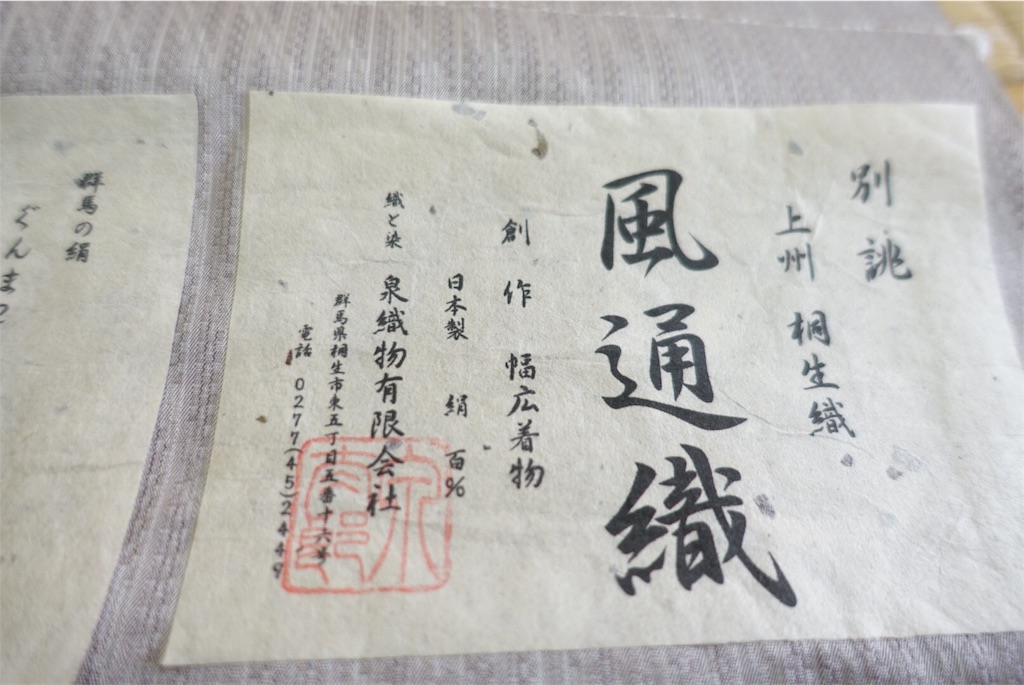 別誂
上州 桐生織
風通織
創作 幅広着物
日本製 絹 百%
織と染 泉織物有限会社
群馬県桐生市東五丁目五番十六号
電話 0277(45)2449
群馬の絹
ぐんま